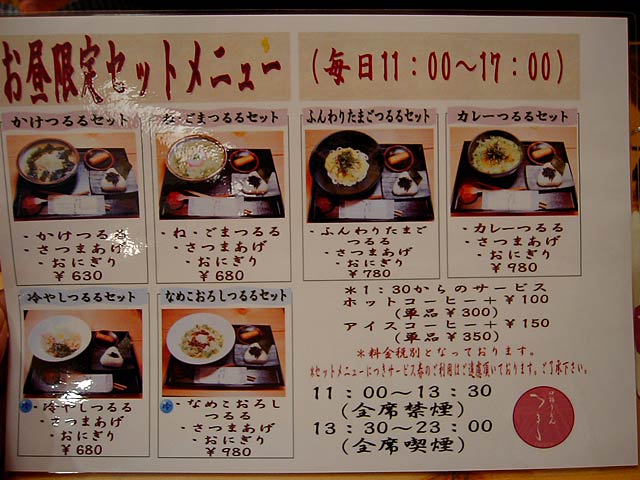 お昼限定セットメニュー (毎日11:00～17:00)
かけつるるセット
・かけつるる
・さつまあげ
・おにぎり
￥630
ね・ごまつるるセット
・ね・ごまつるる
・さつまあげ
・おにぎり
￥680
ふんわりたまごつるるセット
・ふんわりたまご
つるる
・さつまあげ
・おにぎり
￥780
カレーつるるセット
・カレーつるる
・さつまあげ
・おにぎり
￥980
冷やしつるるセット
・冷やしつるる
・さつまあげ
・おにぎり
￥680
なめこおろしつるるセット
・なめこおろし
つるる
・さつまあげ
・おにぎり
￥980
＊1:30からのサービス
ホットコーヒー＋￥100
(単品￥300)
アイスコーヒー＋￥150
(単品￥350)
＊料金税別となっております。
＊セットメニューにつきサービス券のご利用はご遠慮頂いております。ご了承下さい。
11:00～13:30
(全席禁煙)
13:30～23:00
(全席喫煙)